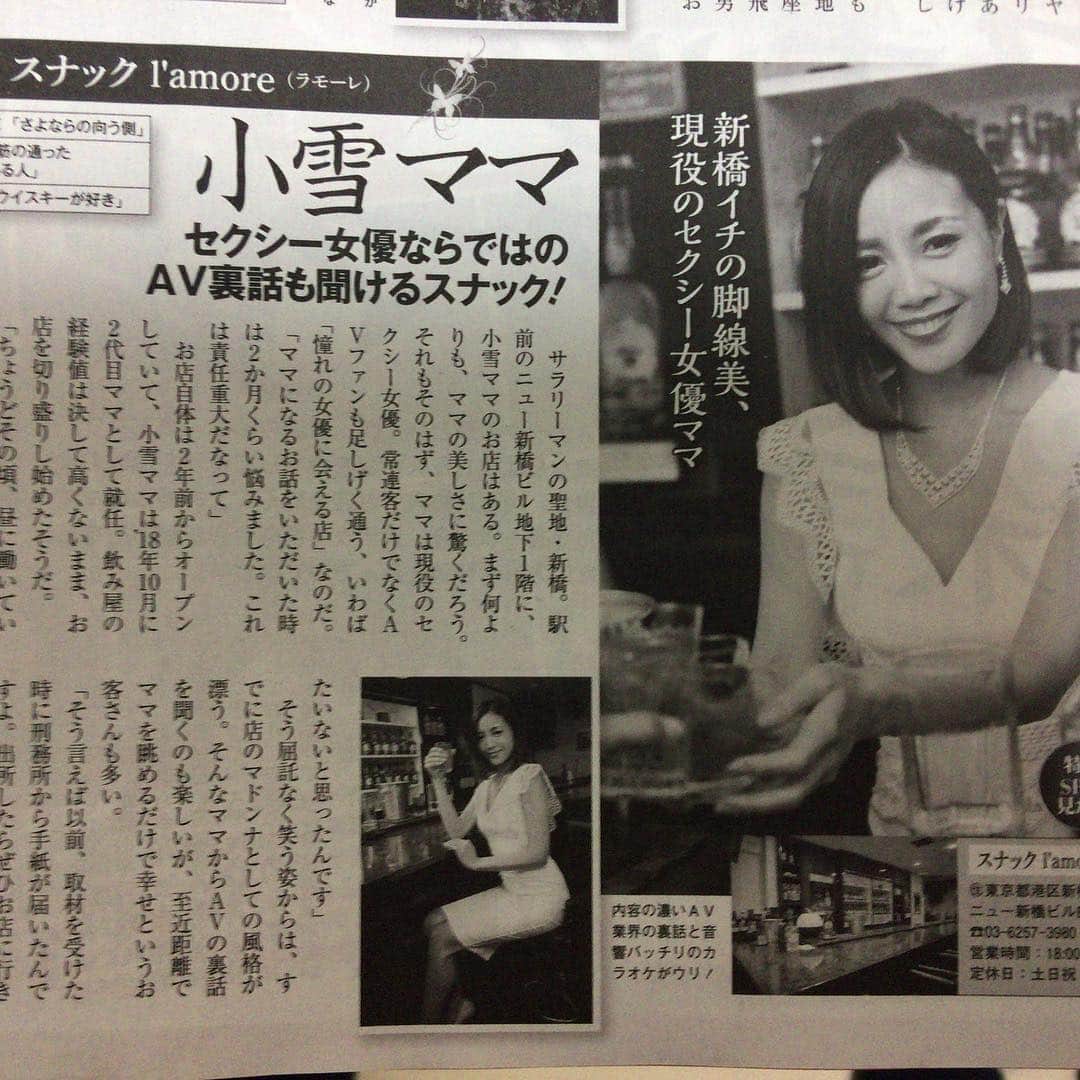 スナック l'amore（ラモーレ）
「さよならの向う側」
筋の通った
る人」
ウイスキーが好き」
小雪ママ
セクシー女優ならではの
AV裏話も聞けるスナック！
新橋イチの脚線美、
現役のセクシー女優ママ
サラリーマンの聖地・新橋。駅
前のニュー新橋ビル地下1階に、
小雪ママのお店はある。まず何よ
りも、ママの美しさに驚くだろう。
それもそのはず、ママは現役のセ
クシー女優。常連客だけでなくA
Vファンも足しげく通う、いわば
「憧れの女優に会える店」なのだ。
「ママになるお話をいただいた時
は2か月くらい悩みました。これ
は責任重大だなって」
お店自体は2年前からオープン
していて、小雪ママは'18年10月に
2代目ママとして就任。飲み屋の
経験値は決して高くないまま、お
店を切り盛りし始めたそうだ。
「ちょうどその頃、昼に働いてい
たいないと思ったんです」
そう屈託なく笑う姿からは、す
でに店のマドンナとしての風格が
漂う。そんなママからAVの裏話
を聞くのも楽しいが、至近距離で
ママを眺めるだけで幸せというお
客さんも多い。
「そう言えば以前、取材を受けた
時に刑務所から手紙が届いたんで
すよ。出所したらぜひお店に行き
内容の濃いAV
業界の裏話と音
響バッチリのカ
ラオケがウリ！
スナック l'amo
㊟東京都港区新橋
ニュー新橋ビル
☎03-6257-3980
営業時間：18:00
定休日：土日祝